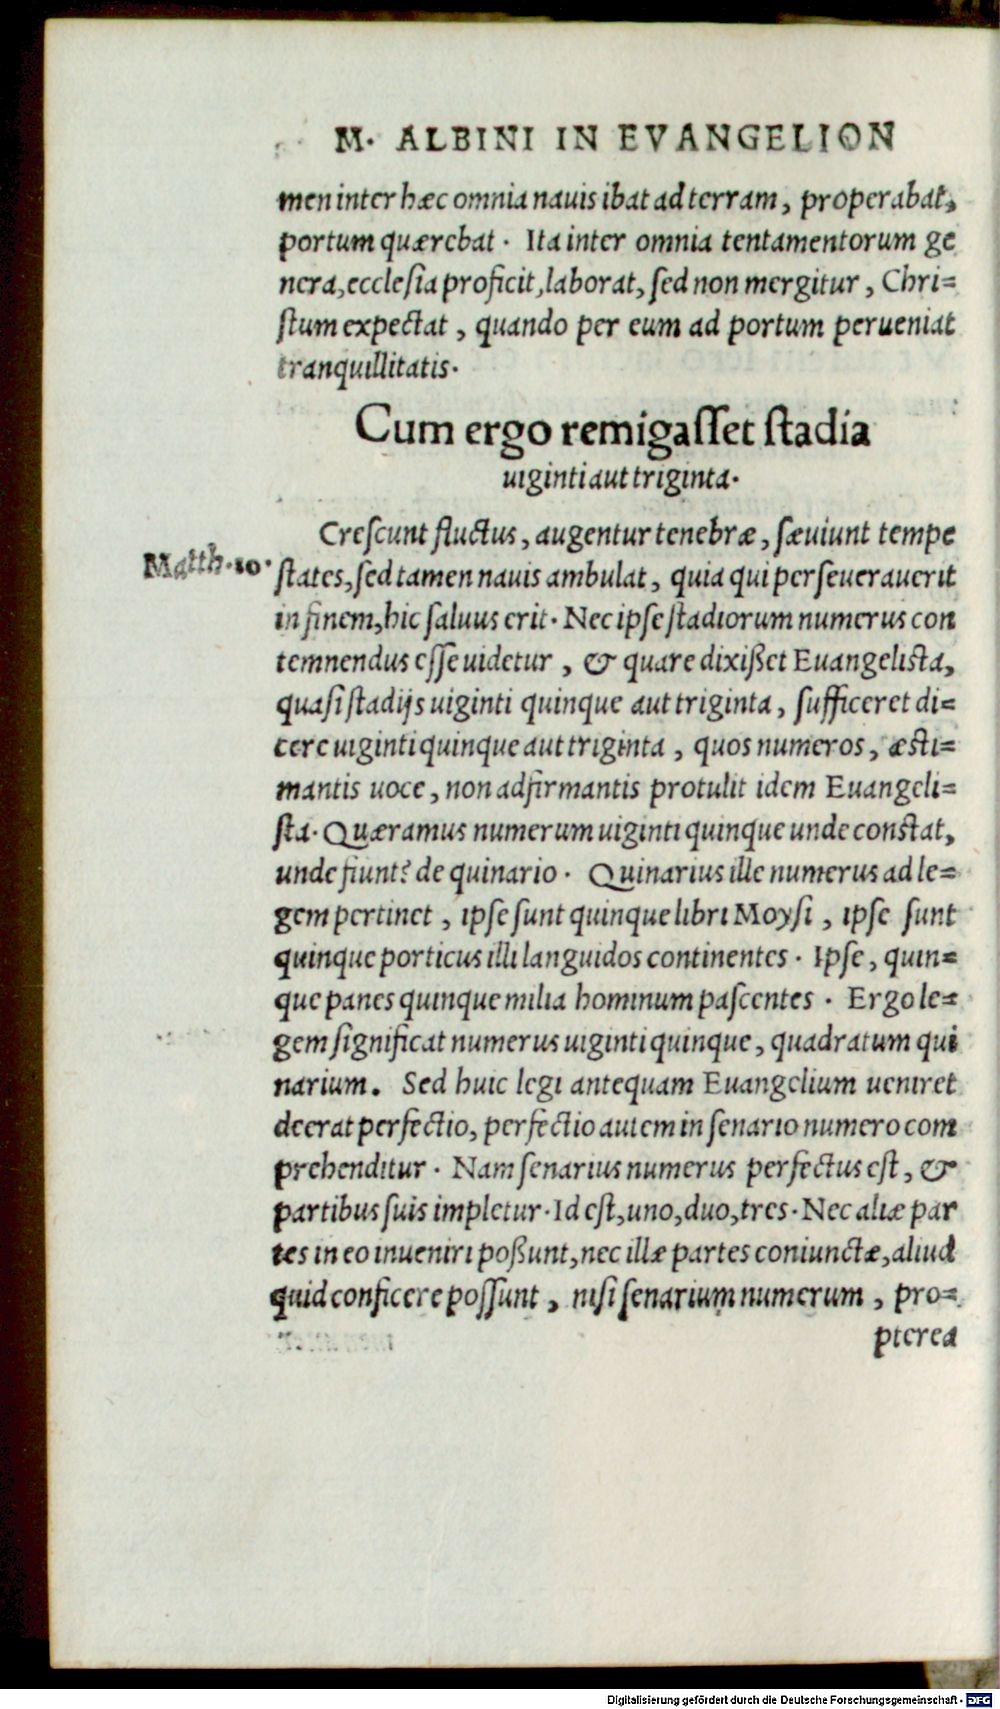 M. ALBINI IN EVANGELION
men inter hæc omnia nauis ibat ad terram, properabat,
portum quærebat. Ita inter omnia tentamentorum ge
nera, ecclesia proficit, laborat, sed non mergitur, Chri=
stum expectat, quando per eum ad portum perueniat
tranquillitatis.
Cum ergo remigasset stadia
uiginti aut triginta.
Crescunt fluctus, augentur tenebræ, sæuiunt tempe
Matth. 10. states, sed tamen nauis ambulat, quia qui perseuerauerit
in finem, hic saluus erit. Nec ipse stadiorum numerus con
temnendus esse uidetur, & quare dixißet Euangelista,
quasi stadijs uiginti quinque aut triginta, sufficeret di=
cere uiginti quinque aut triginta, quos numeros, æsti=
mantis uoce, non adfirmantis protulit idem Euangeli=
sta. Quæramus numerum uiginti quinque unde constat,
unde fiunt? de quinario. Quinarius ille numerus ad le=
gem pertinet, ipse sunt quinque libri Moysi, ipse sunt
quinque porticus illi languidos continentes. Ipse, quin=
que panes quinque milia hominum pascentes. Ergo le=
gem significat numerus uiginti quinque, quadratum qui
narium. Sed huic legi antequam Euangelium ueniret
deerat perfectio, perfectio autem in senario numero com
prehenditur. Nam senarius numerus perfectus est, &
partibus suis impletur. Id est, uno, duo, tres. Nec aliæ par
tes in eo inueniri poßunt, nec illæ partes coniunctæ, aliud
quid conficere possunt, nisi senarium numerum, pro=
pterea
Digitalisierung gefördert durch die Deutsche Forschungsgemeinschaft - DFG